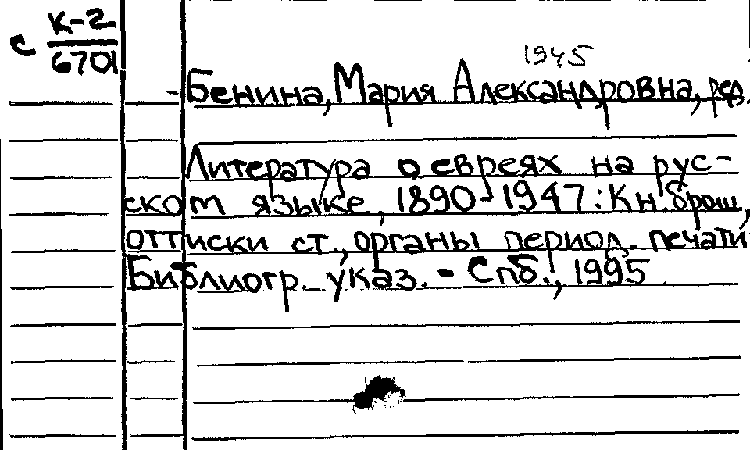 с К-2
6701
1945
Бенина, Мария Александровна, ред.
Литература о евреях на рус-
ском языке, 1890-1947: Кн. брош.,
оттиски ст., органы период. печати
Библиогр. указ. - Спб., 1995